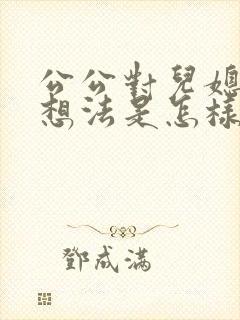 公公對兒媳
想法是怎樣
鄧成滿